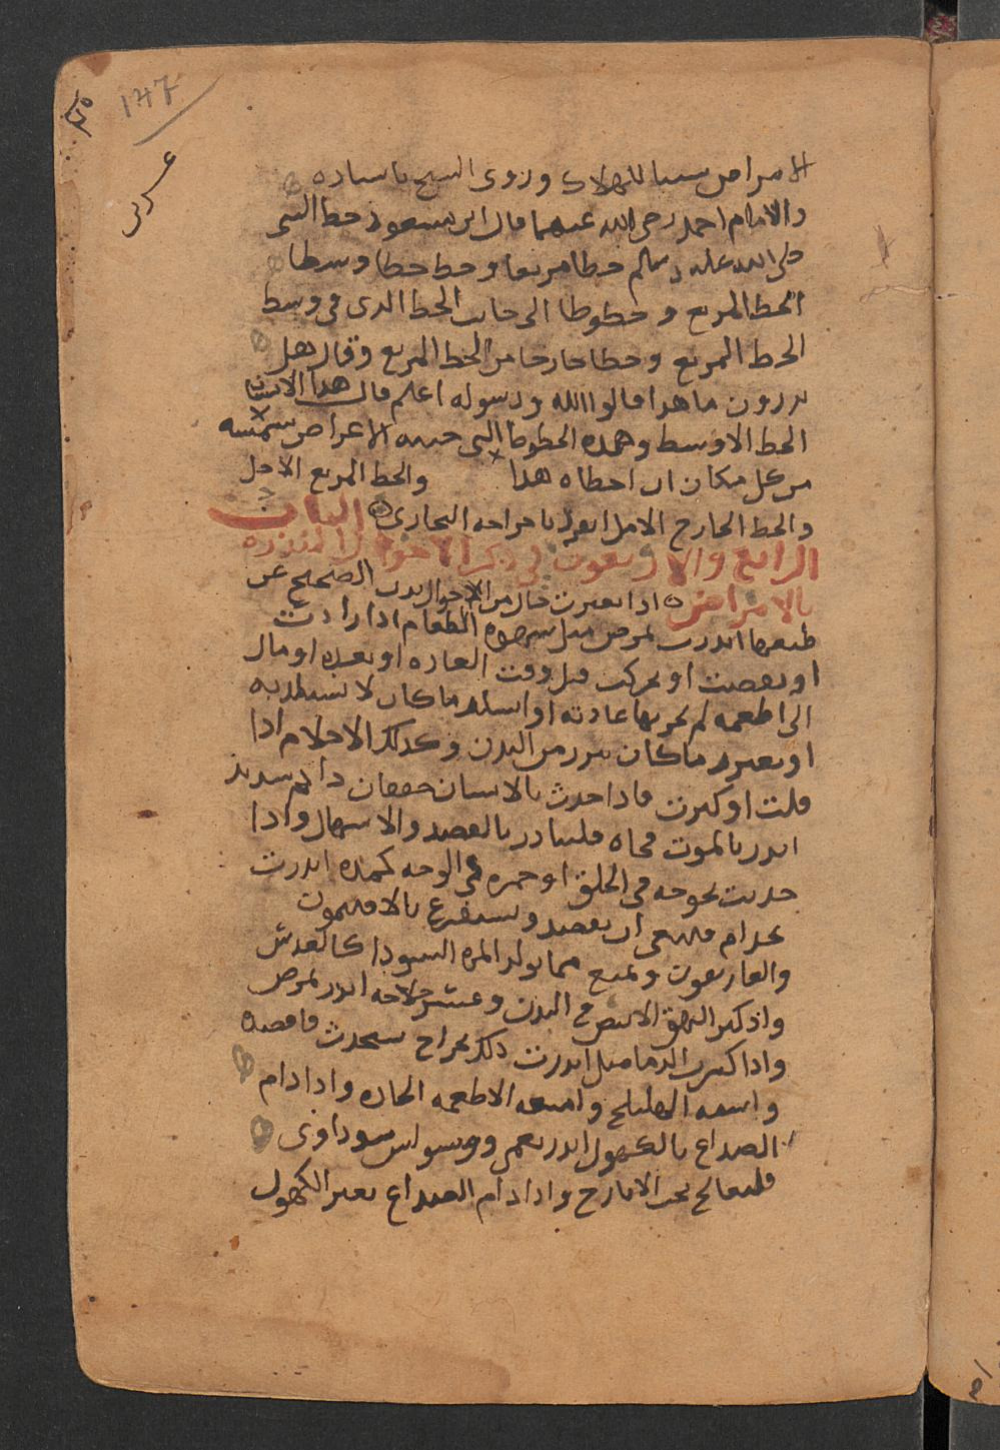 ١٤٧
الامراض سببا للهلاك وروى الشيخ باسناده
والامام احمد رضى الله عنهما قال ابن مسعود خط النبى
صلى الله عليه وسلم خطا مربعا وخط خطا وسط
الخط المربع وخطوطا الى جانب الخط الذى فى وسط
الخط المربع وخطا خارجا من الخط المربع وقال هل
تدرون ما هذا قالوا الله ورسوله اعلم قال هذا الانسان
الخط الاوسط وهذه الخطوط التى جنبه الاعراض تنهشه
من كل مكان ان اخطاه هذا والخط المربع الاجل
والخط الخارج الامل انفرد باخراجه البخارى الباب
الرابع والاربعون فى ذكر الاحوال المنذره
بالامراض اذا تغيرت حال من الاحوال بدن الصحيح عن
طبعها انذرت بمرض مثل شهوه الطعام اذا زادت
او نقصت او تحركت قبل وقت العاده او بعده او مال
الى اطعمه لم تجر بها عادته او استلذ ما كان لا يستلذ به
او تغير ما كان يبرز من البدن وكذلك الاحلام اذا
قلت او كثرت فاذا حدث بالانسان خفقان دائم شديد
انذر بالموت فجاه فليبادر بالفصد والاسهال واذا
حدثت بحوحه فى الحلق او حمره فى الوجه كمده انذرت
بجذام فينبغى ان يفصد ويستفرغ بالافتيمون
والغاريقون ويمنع مما يولد المره السودا كالعدس
واذ كثر البهق الابيض فى البدن وعسر علاجه انذر بمرض
واذا كثرت الدماميل انذرت ذلك بخراج سيحدث فافصده
واسقه الهليلج وامنعه الاطعمه الحاره واذا دام
الصداع بالكهول انذر بعمى ووسواس سوداوى
فليعالج بحب الايارج واذا دام الصداع بغير الكهول